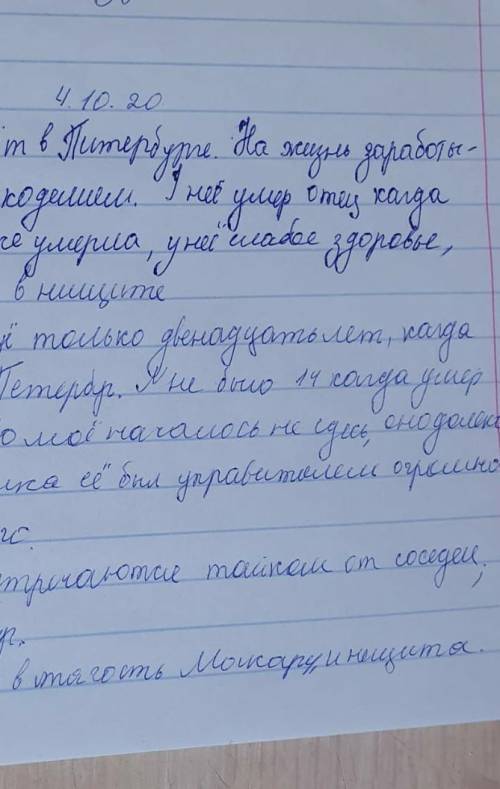 4.10.20
т в Питербурге. На жизнь заработы-
коделием. У неё умер отец когда
же умерла, у неё слабое здоровье,
в нищите
ё только двенадцать лет, когда
Петербр. Я не было 14 когда умер
о моё началось не здесь, оно далеко
ика её был управителем огромно
го.
тречаются тайком от соседей,
ур.
в тягость Макару, и нещита.